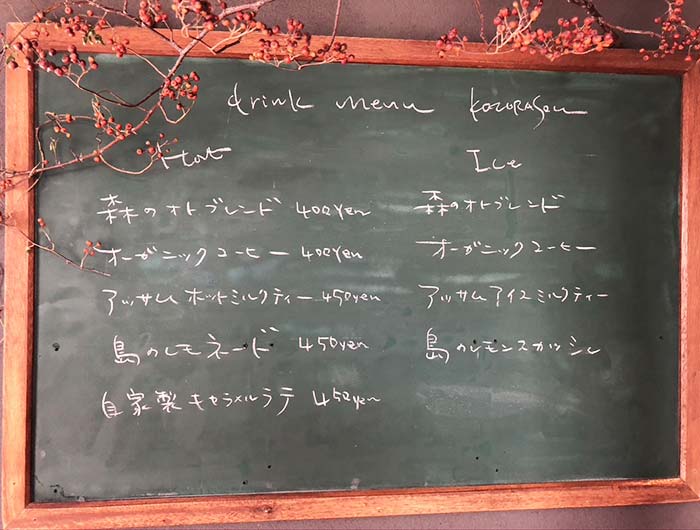 drink menu kazurasou
Hot
Ice
森のオトブレンド 400yen
森のオトブレンド
オーガニックコーヒー 400yen
オーガニックコーヒー
アッサムホットミルクティー 450yen
アッサムアイスミルクティー
島のレモネード 450yen
島のレモンスカッシュ
自家製キャラメルラテ 450yen